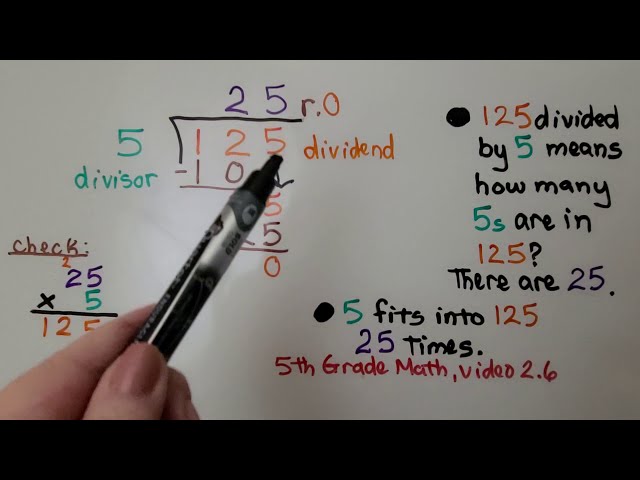 25 r.0
5 125 dividend
divisor -10
5
5
0
check:
2
25
x 5
125
● 125 divided
by 5 means
how many
5s are in
125?
There are 25.
● 5 fits into 125
25 Times.
5th Grade Math, video 2.6